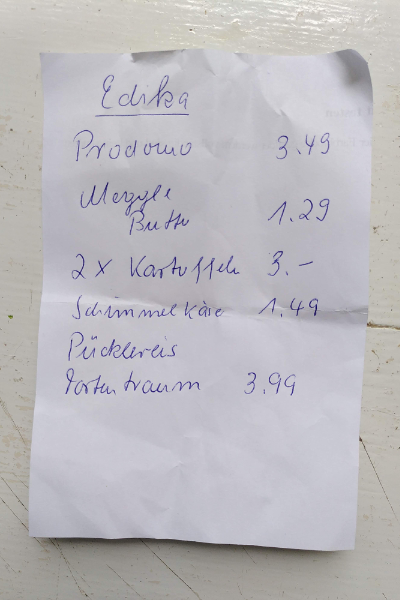 Edika
Prodomo 3.49
Meggle
Butter 1.29
2 x Kartoffeln 3.-
Schimmelkäse 1.49
Pücklereis
Tortentraum 3.99